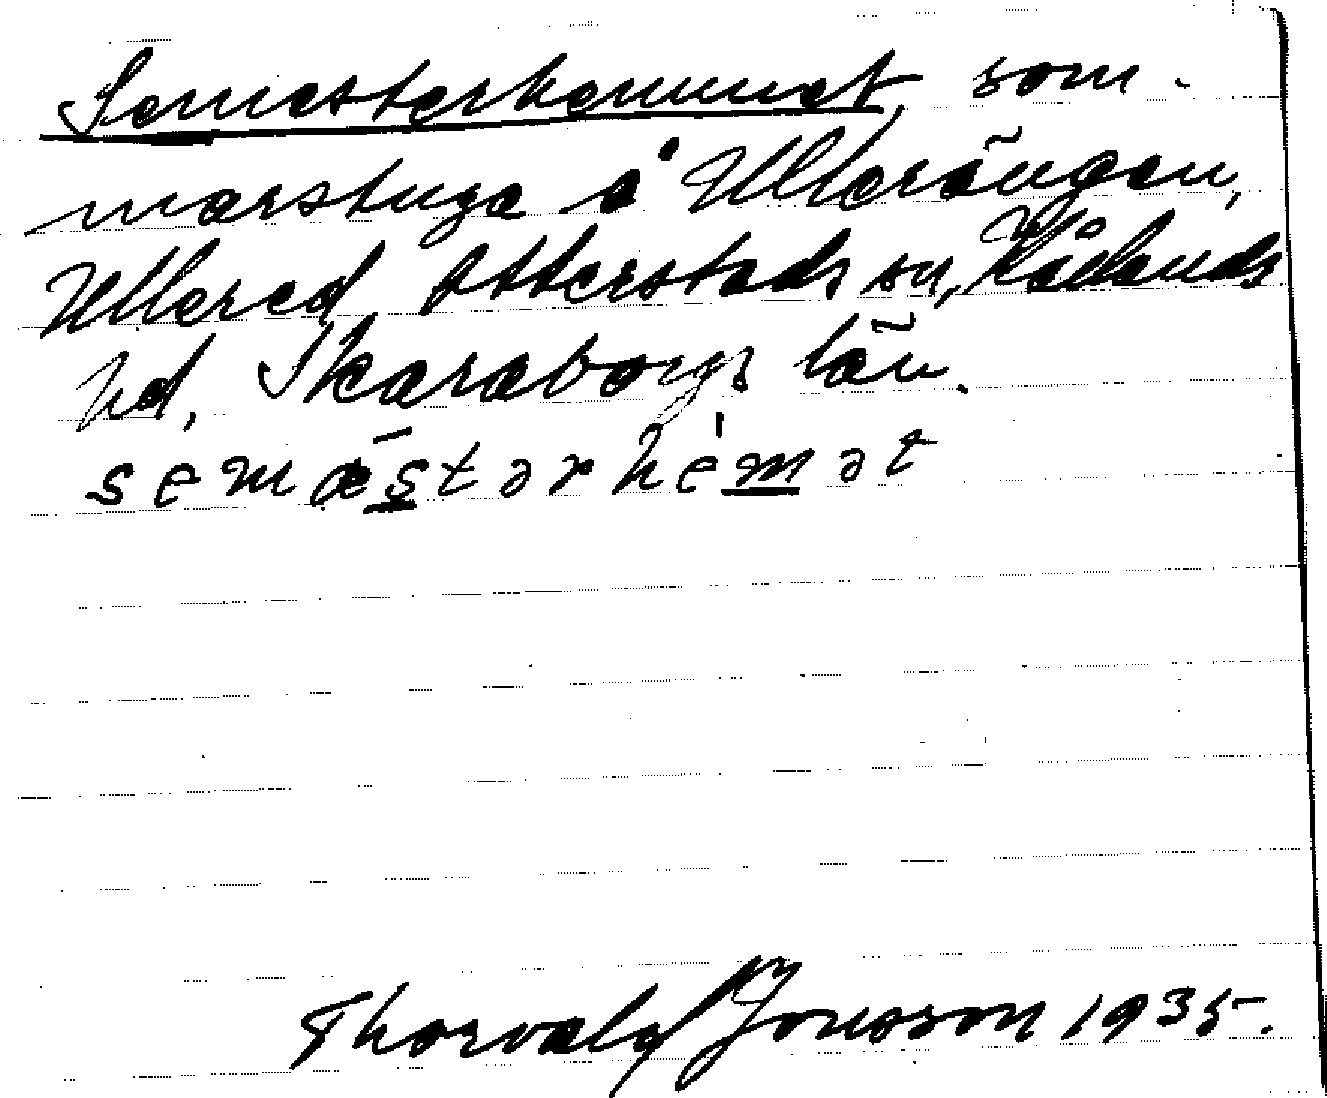 Semesterhemmet, som-
marstuga å Ullerängen,
Ullered Otterstads sn, Kållands
hd, Skaraborgs län.
semæ̅stərhemət
Thorvald Jonsson 1935.